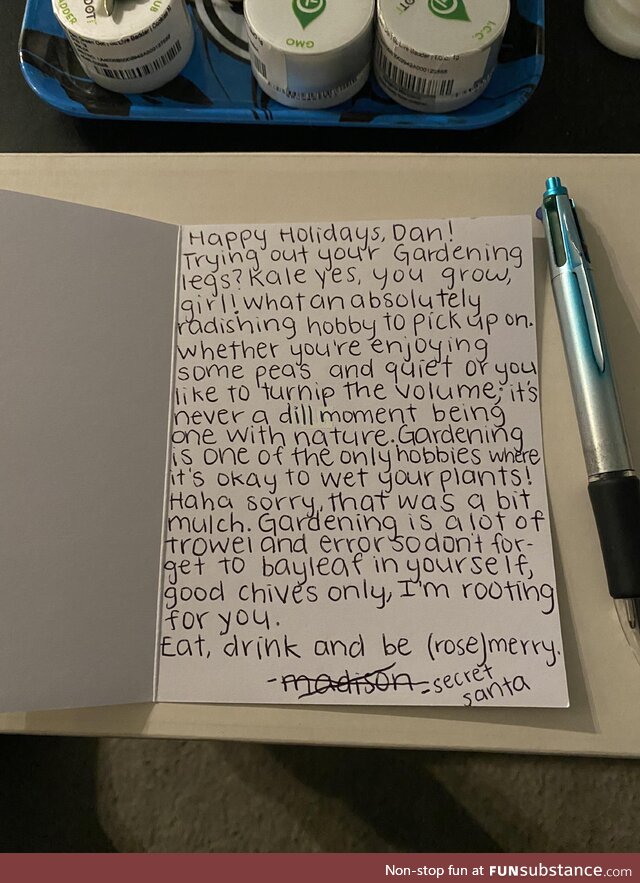 GMO
Happy Holidays, Dan!
Trying out your Gardening
legs? Kale yes, you grow,
girl! What an absolutely
radishing hobby to pick up on.
Whether you're enjoying
some peas and quiet or you
like to turnip the volume, it's
never a dill moment being
one with nature. Gardening
is one of the only hobbies where
it's okay to wet your plants!
Haha sorry, that was a bit
mulch. Gardening is a lot of
trowel and error so don't for-
get to bayleaf in yourself,
good chives only, I'm rooting
for you.
Eat, drink and be (rose)merry.
- madison - secret
santa
Non-stop fun at FUNsubstance.com